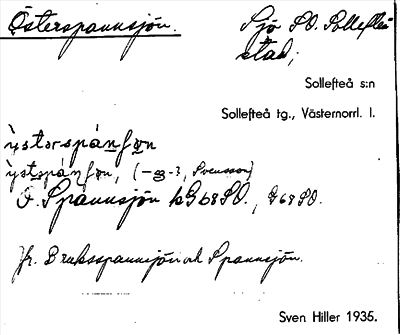 Österspannsjön.
Sjö SO. Sollefteå
stad;
Sollefteå s:n
Sollefteå tg., Västernorrl. l.
Svensson)
F. Spannsjön kG68SO., G68SO.
Jfr. Bruksspannsjön och Spannsjön.
Sven Hiller 1935.